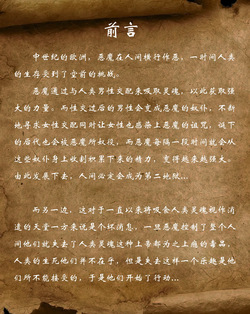 前言
中世纪的欧洲，恶魔在人间横行作恶，一时间人类
的生存受到了空前的挑战。
恶魔通过与人类男性交配来吸取灵魂，以此获取强
大的力量，而性交过后的男性会变成恶魔的奴仆，不断
地寻求女性交配同时让女性也感染上恶魔的诅咒，诞下
的后代也会被恶魔所奴役，而恶魔每隔一段时间就会从
这些奴仆身上收割积累下来的精力，变得越来越强大。
由此发展下去，人间必定会成为第二地狱…
而另一边，这对于一直以来将吸食人类灵魂视作消
遣的天堂一方来说是个坏消息，一旦恶魔控制了整个人
间他们就失去了人类灵魂这种上帝都为之上瘾的毒品，
人类的生死他们并不在乎，但是失去这样一个乐趣是他
们所不能接受的，于是他们开始了行动…